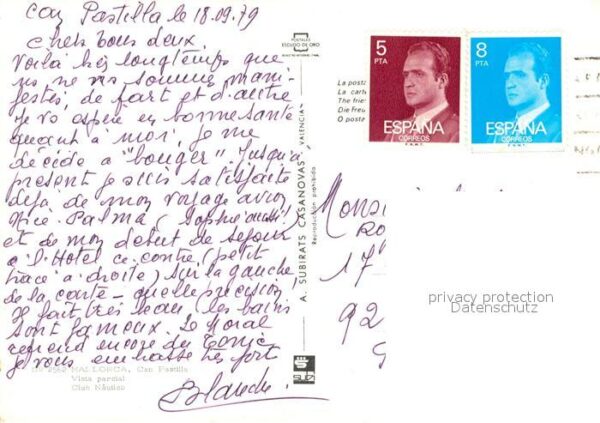 Can Pastilla le 18.09.79
Chers tous deux.
Voilà bien longtemps que
ns ne ns sommes mani-
festés, de part et d'autre
je vs espère en bonne santé
quant à moi, je me
décide à "bouger". Jusqu'à
présent je suis satisfaite
déjà de mon voyage avion
Nice. Palma (Sophie aussi!)
et de mon début de séjour
à l'Hôtel ci-contre (petit
tracé à droite) sur la gauche
de la carte - quelle précision,
Il fait très beau, les bains
sont fameux. Le Moral
reprend encore du Tonic
je vous embrasse très fort
Blanche.
Nº 2562 MALLORCA, Can Pastilla
Vista parcial
Club Náutico
POSTALES
ESCUDO DE ORO
A. SUBIRATS CASANOVAS - VALENCIA
Reproducción prohibida
La posta
La cart
The frie
Die Freu
O poste
5
PTA
ESPAÑA
CORREOS
8
PTA
ESPAÑA
CORREOS
Monsi
17
92
privacy protection
Datenschutz